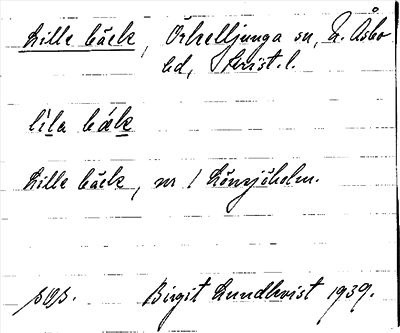 Lille bäck, Örkelljunga sn, N. Åsbo
hd, Krist. l.
lìla bák
Lille bäck, nr 1 Lönsjöholm.
sOs. Birgit Lundkvist 1939.